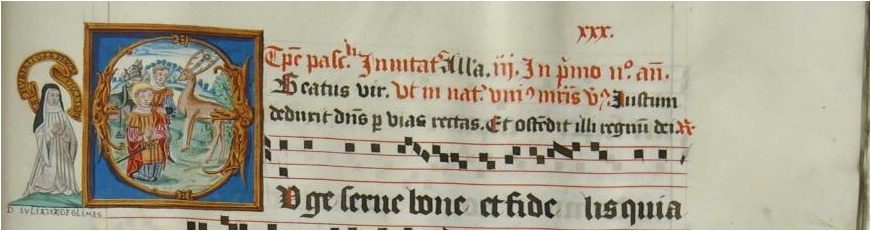 xxx.
Tp̄e pasch̄ Inuitat᷒ Alľa. iij. In p̄mo n°. an̄.
Beatus vir. Vt in nat᷒ vni⁹ mr̄is v̄. Iustum
deduxit dn̄s p vias rectas. Et ostēdit illi regnū dei ℟
Vge serue bone et fide lis quia
D. IVLIANA DE GLIMES